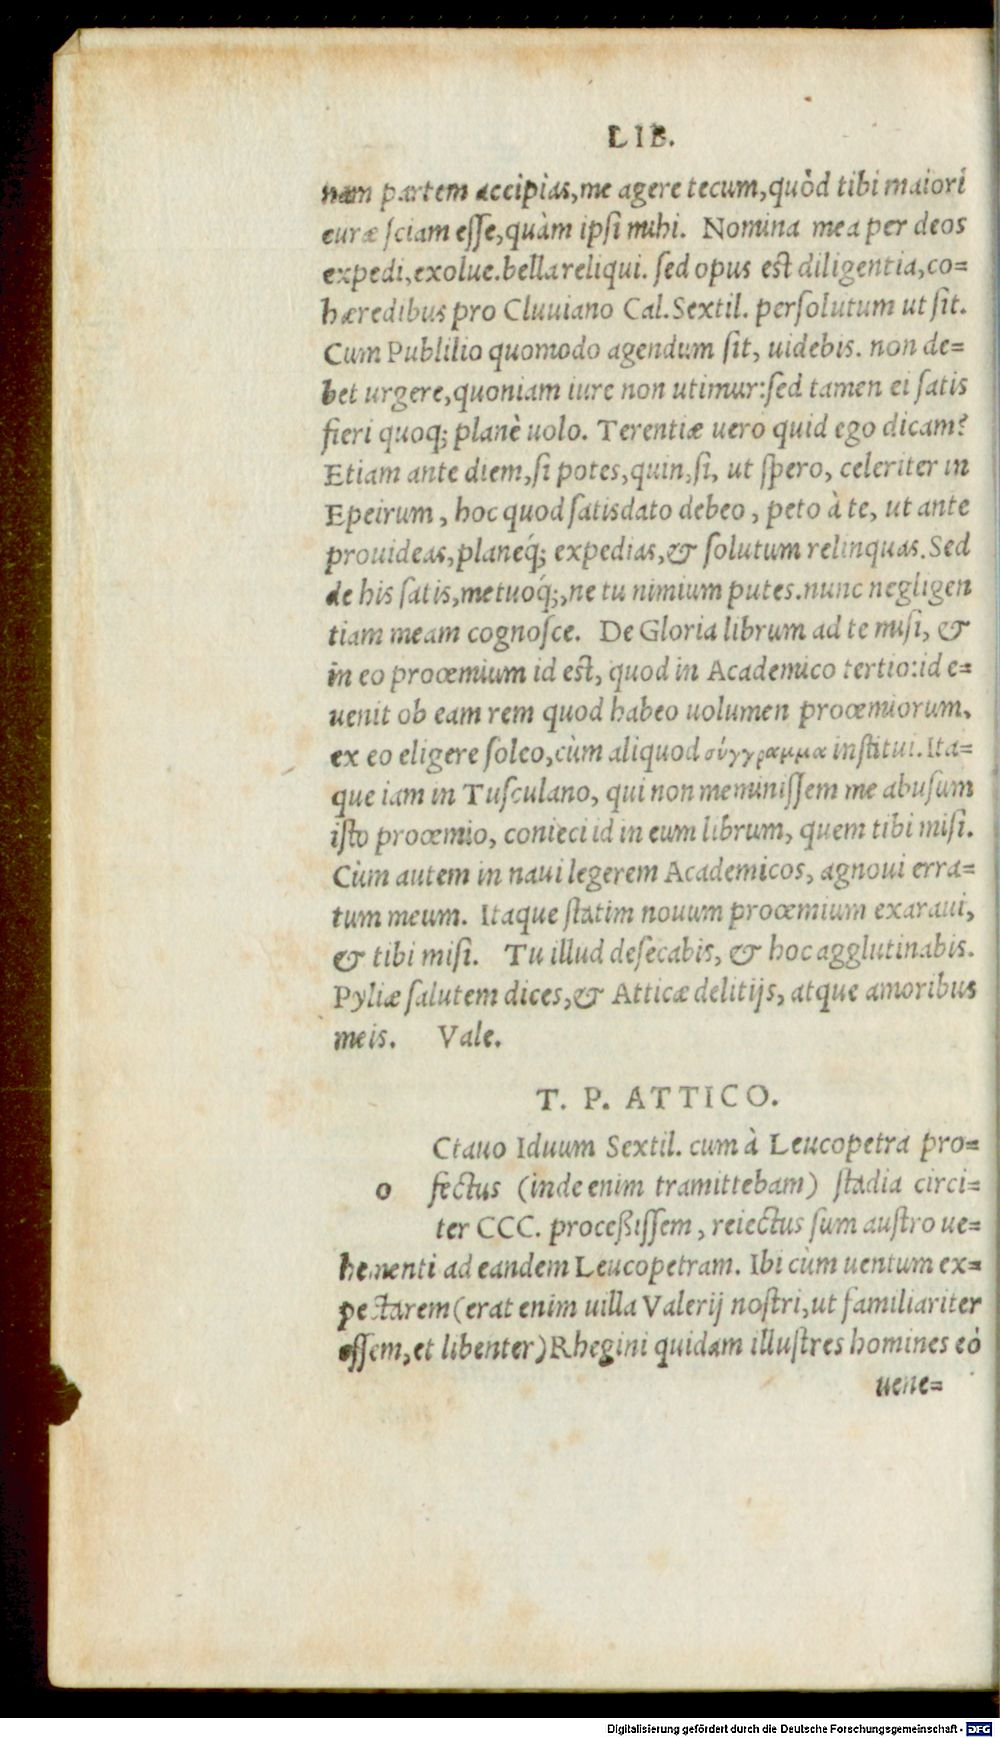 LIB.
nam partem accipias,me agere tecum,quòd tibi maiori
curæ sciam esse,quàm ipsi mihi. Nomina mea per deos
expedi,exolue.bella reliqui. sed opus est diligentia,co=
hæredibus pro Cluuiano Cal.Sextil. persolutum ut sit.
Cum Publilio quomodo agendum sit, uidebis. non de=
bet urgere,quoniam iure non utimur:sed tamen ei satis
fieri quoq; planè uolo. Terentiæ uero quid ego dicam?
Etiam ante diem,si potes,quin,si, ut spero, celeriter in
Epeirum, hoc quod satisdato debeo, peto à te, ut ante
prouideas,planeq́; expedias,& solutum relinquas.Sed
de his satis,metuoq́;,ne tu nimium putes.nunc negligen
tiam meam cognosce. De Gloria librum ad te misi, &
in eo procœmium id est, quod in Academico tertio:id e=
uenit ob eam rem quod habeo uolumen proœmiorum,
ex eo eligere soleo,cùm aliquod σύγγραμμα institui.Ita=
que iam in Tusculano, qui non meminissem me abusum
isto proœmio, conieci id in eum librum, quem tibi misi.
Cùm autem in naui legerem Academicos, agnoui erra=
tum meum. Itaque statim nouum proœmium exaraui,
& tibi misi. Tu illud desecabis, & hoc agglutinabis.
Pyliæ salutem dices,& Atticæ delitijs, atque amoribus
meis. Vale.
T. P. ATTICO.
Ctauo Iduum Sextil. cum à Leucopetra pro=
o fectus (inde enim tramittebam) stadia circi=
ter CCC. proceßissem, reiectus sum austro ue=
hementi ad eandem Leucopetram. Ibi cùm uentum ex=
pectarem(erat enim uilla Valerij nostri,ut familiariter
essem,et libenter)Rhegini quidam illustres homines eò
uene=
Digitalisierung gefördert durch die Deutsche Forschungsgemeinschaft - DFG